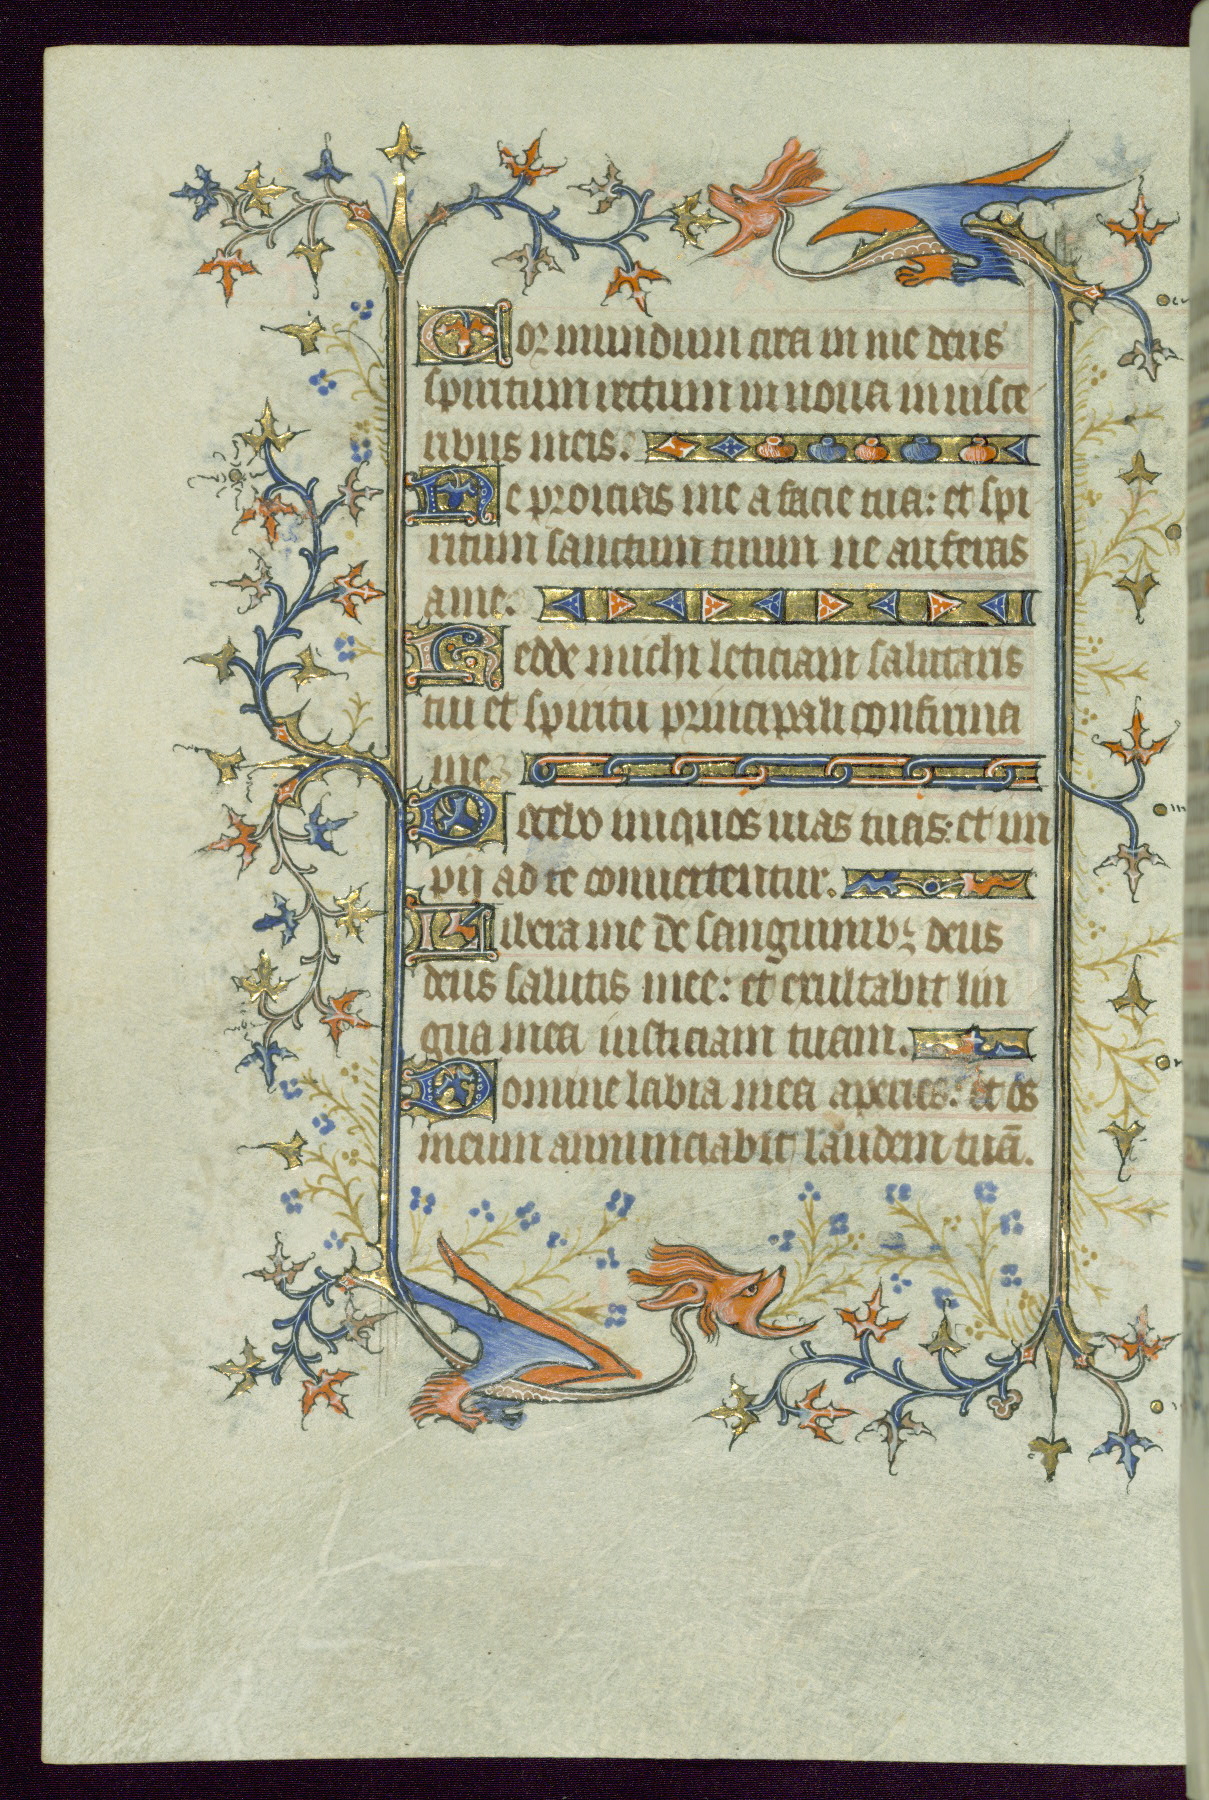 Cor mundum crea in me deus
spiritum rectum innoua in uisce
ribus meis.
Ne proicias me a facie tua: et spi
ritum sanctum tuum ne auferas
a me.
Redde michi leticiam salutaris
tui et spiritu principali confirma
me
Docebo iniquos uias tuas: et im
pij ad te conuertentur.
Libera me de sanguinibꝫ deus
deus salutis mee: et exultabit lin
gua mea iusticiam tuam.
Domine labia mea aperies: et os
meum annunciabit laudem tuā.